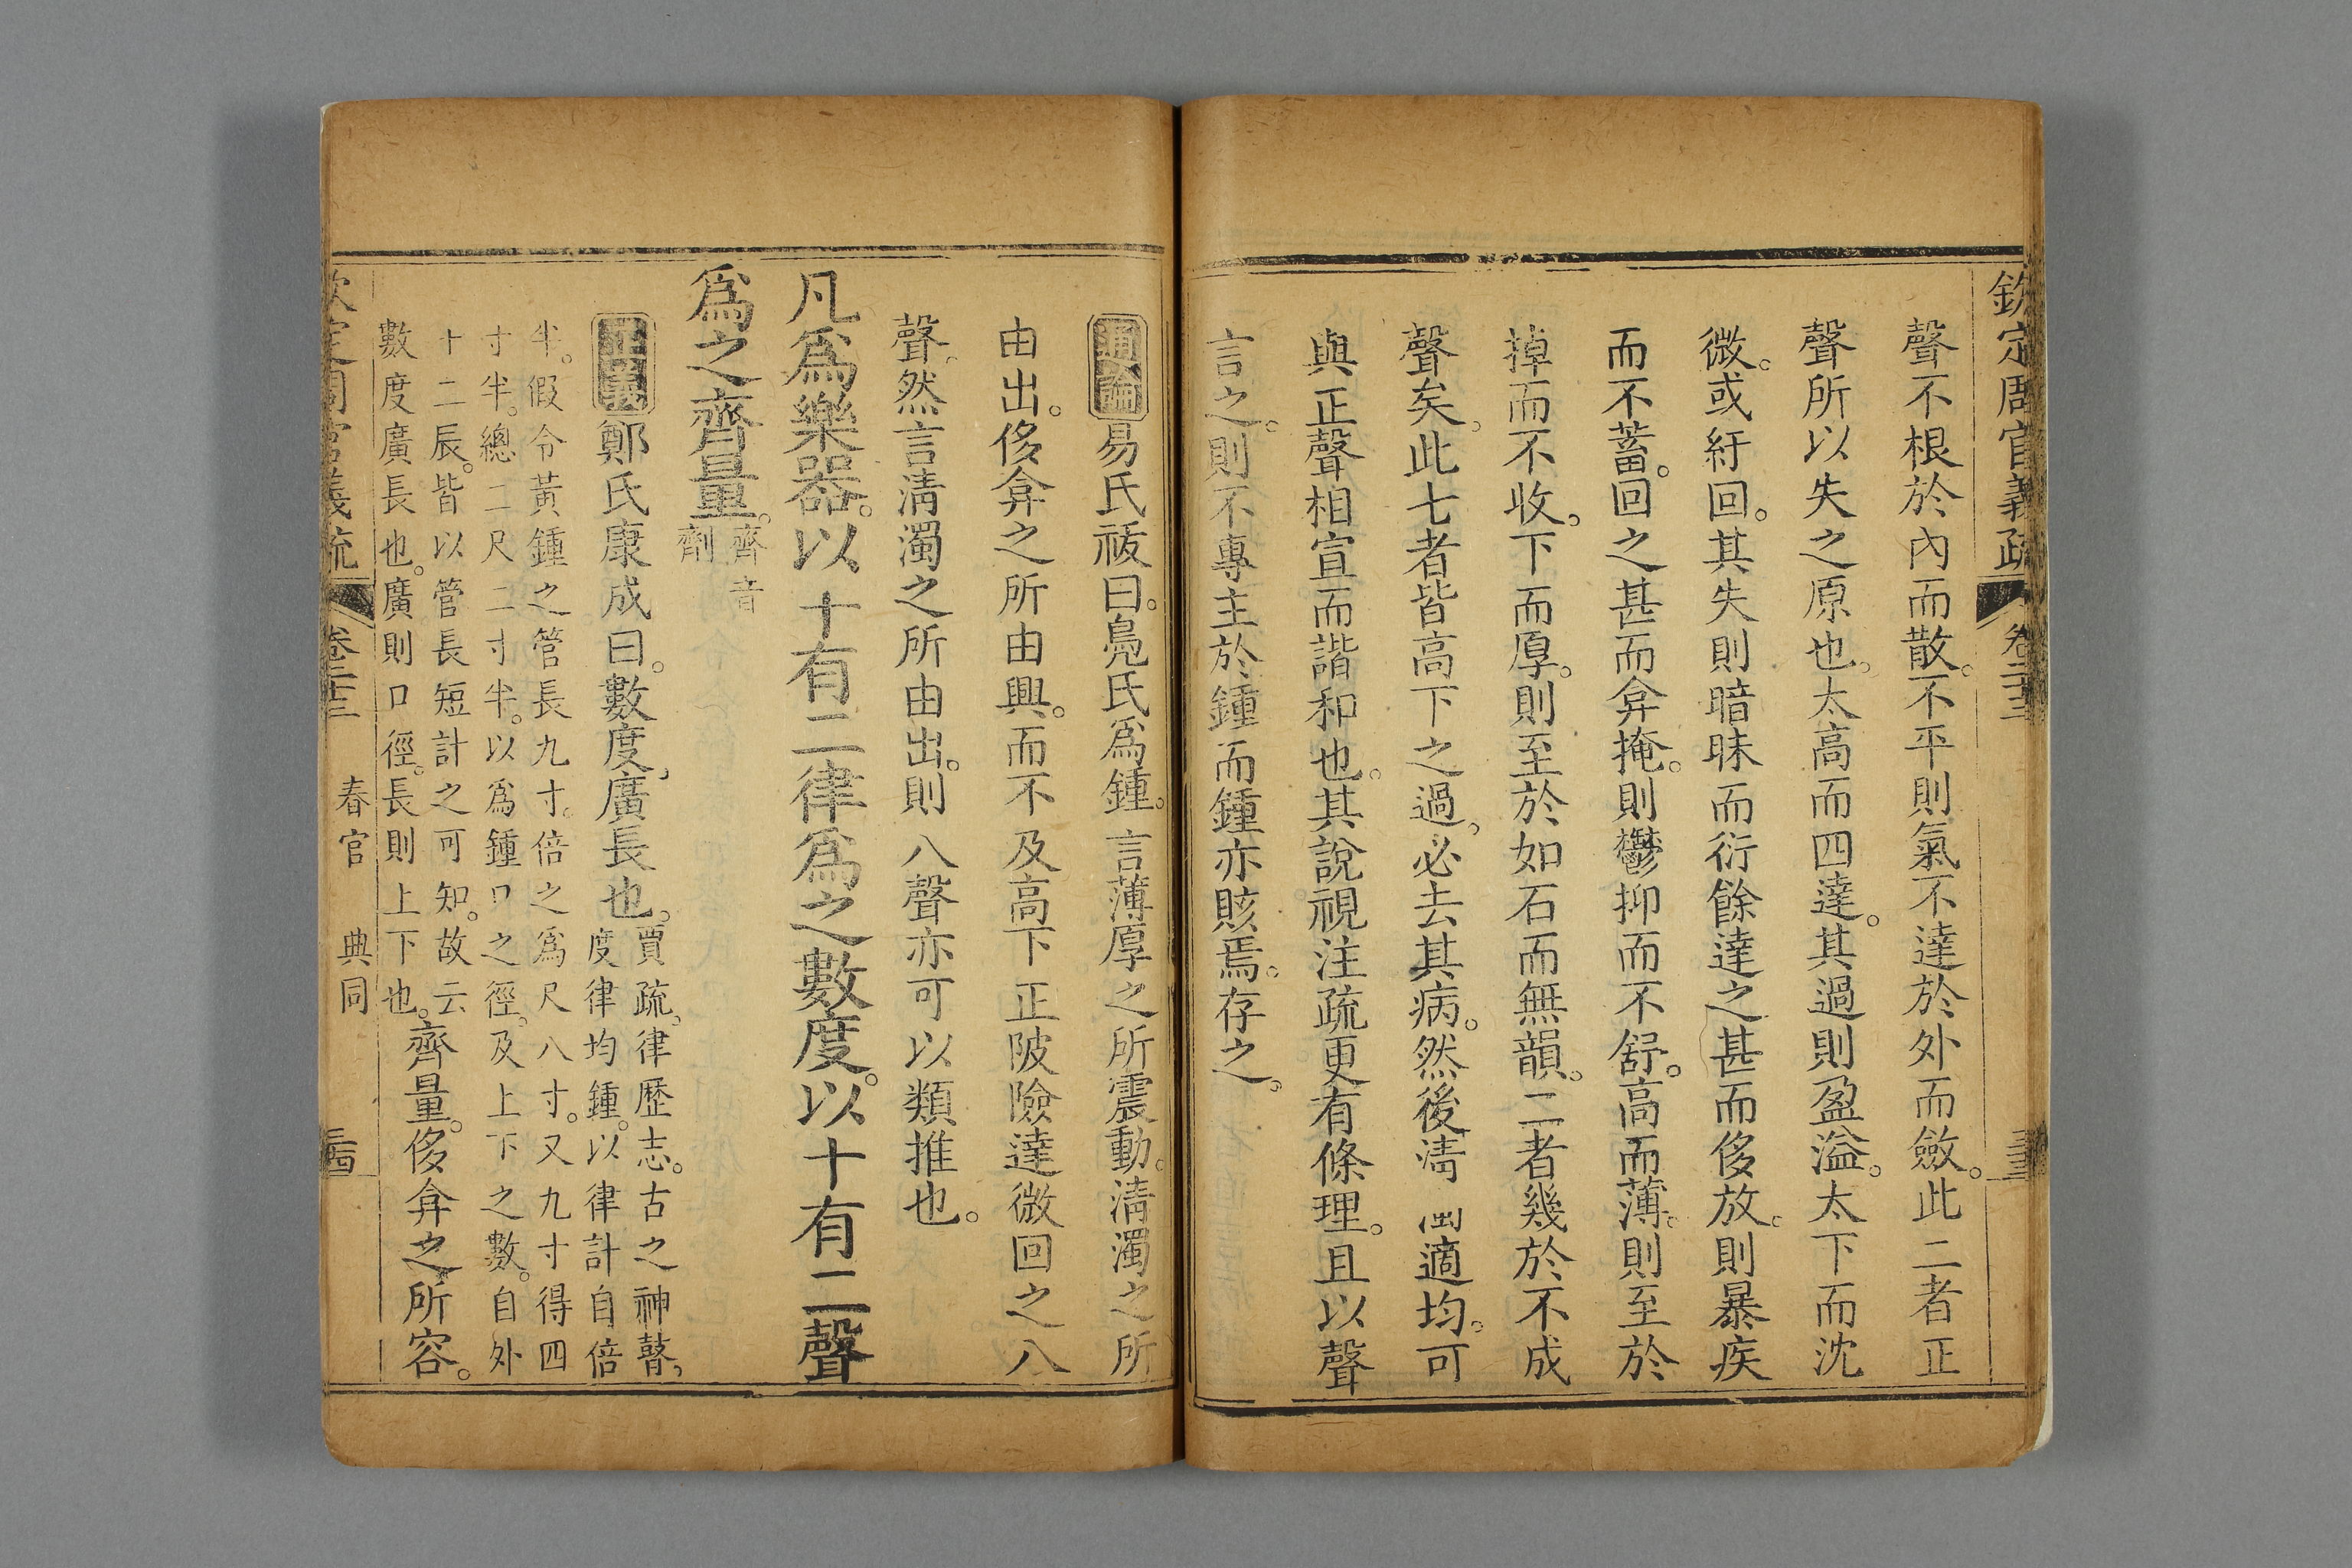 欽定周官義疏 卷二十三
聲不根於內而散。不平則氣不達於外而斂。此二者正
聲所以失之原也。太高而四達。其過則盈溢。太下而沈
微。或紆回。其失則暗昧而衍餘達之甚而侈放。則暴疾
而不蓄。回之甚而弇掩。則鬱抑而不舒。高而薄。則至於
掉而不收。下而厚。則至於如石而無韻。二者幾於不成
聲矣。此七者皆高下之過。必去其病。然後淸 適均。可
與正聲相宣而諧和也。其說視注疏更有條理。且以聲
言之。則不專主於鍾而鍾亦賅焉。存之。
通論易氏祓曰。鳧氏爲鍾。言薄厚之所震動。淸濁之所
由出。侈弇之所由興。而不及高下正陂險達微回之八
聲。然言淸濁之所由出。則八聲亦可以類推也。
凡爲樂器。以十有二律爲之數度。以十有二聲
爲之齊量。齊音
劑
正義鄭氏康成曰。數度，廣長也。賈疏。律歷志。古之神瞽，
度律均鍾。以律計自倍
半。假令黃鍾之管長九寸。倍之爲尺八寸。又九寸得四
寸半。總二尺二寸半。以爲鍾口之徑。及上下之數。自外
十二辰。皆以管長短計之可知。故云
數度廣長也。廣則口徑。長則上下也。齊量。侈弇之所容。
欽定周官義疏 卷二十三 春官 典同 二十四